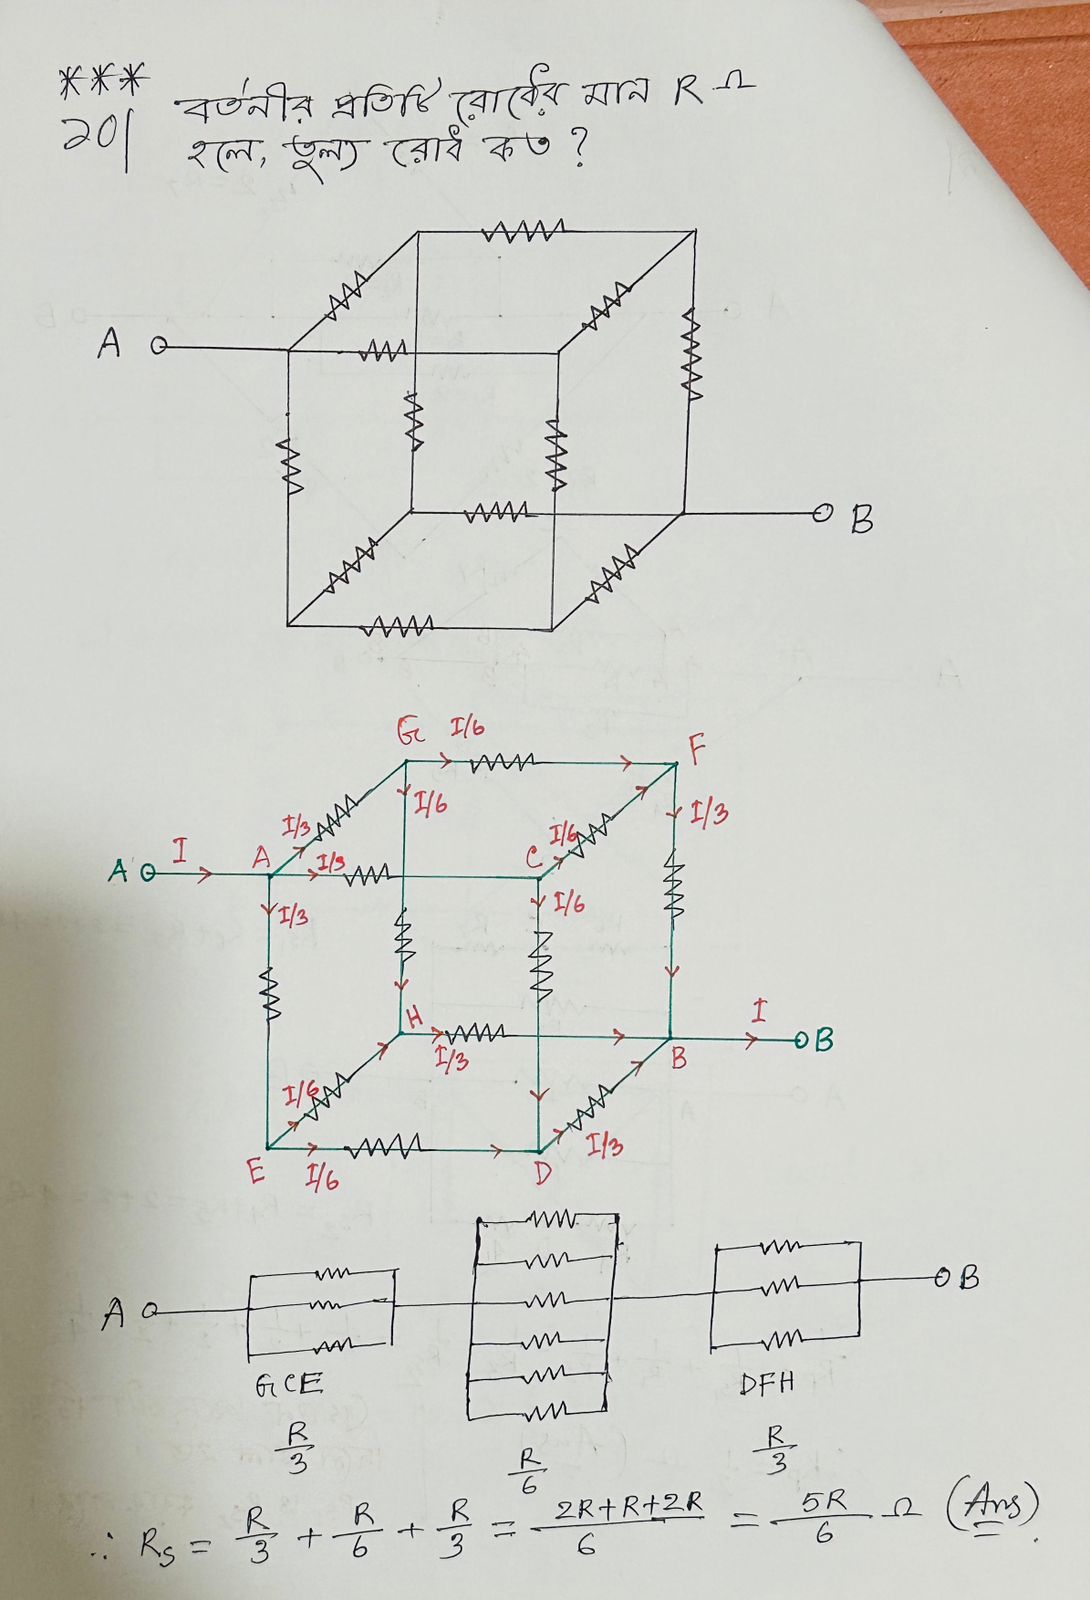 ***
20| বর্তনীর প্রতিটি রোধের মান R Ω
হলে, তুল্য রোধ কত ?
A
B
G I/6 F
I/6 I/3
I/3 I/6
A I A I/3 C
I/3 I/6
H I
I/3 B B
I/6 I/3
E I/6 D
A B
GCE DFH
R/3 R/6 R/3
∴ Rs = R/3 + R/6 + R/3 = 2R+R+2R/6 = 5R/6 Ω (Ans).